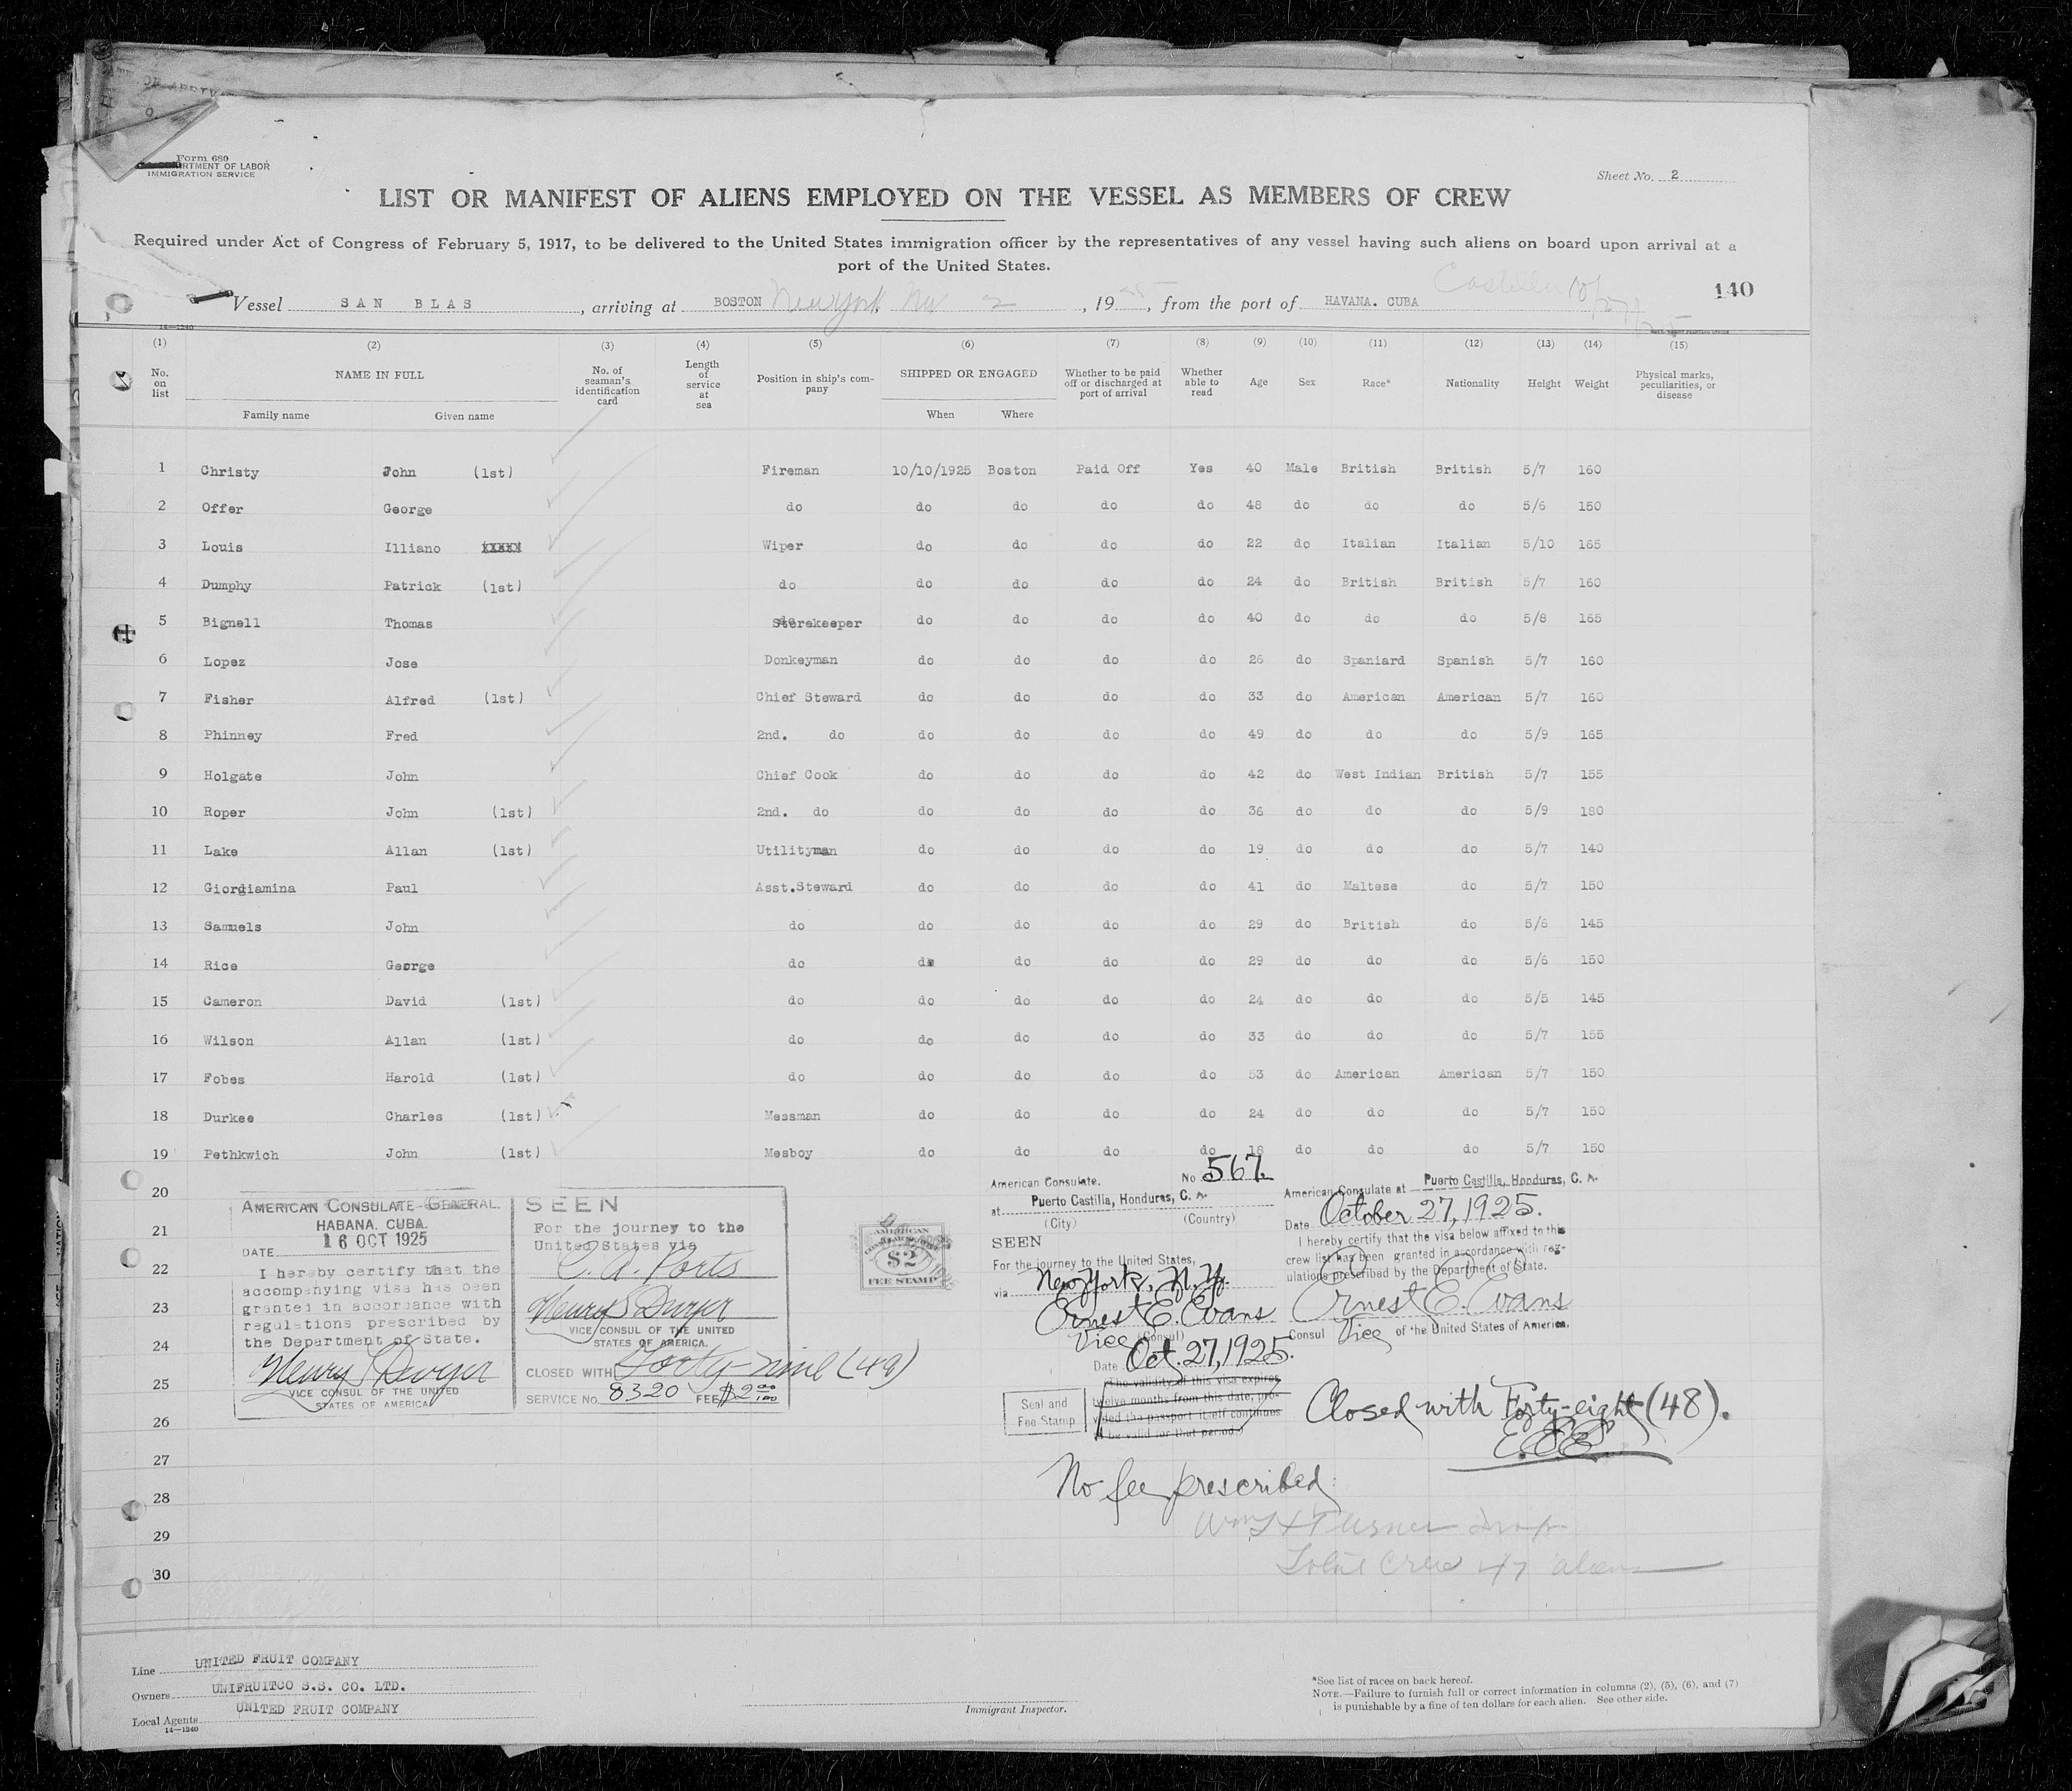 Form 680
DEPARTMENT OF LABOR
IMMIGRATION SERVICE
Sheet No. 2
LIST OR MANIFEST OF ALIENS EMPLOYED ON THE VESSEL AS MEMBERS OF CREW
Required under Act of Congress of February 5, 1917, to be delivered to the United States immigration officer by the representatives of any vessel having such aliens on board upon arrival at a
port of the United States.
Castilla 10/27/25
140
Vessel SAN BLAS, arriving at BOSTON New York, Nov 2, 1925, from the port of HAVANA. CUBA
14—1240
(1) (2) (3) (4) (5) (6) (7) (8) (9) (10) (11) (12) (13) (14) (15)
No. on list NAME IN FULL No. of seaman's identification card Length of service at sea Position in ship's company SHIPPED OR ENGAGED Whether to be paid off or discharged at port of arrival Whether able to read Age Sex Race* Nationality Height Weight Physical marks, peculiarities, or disease
Family name Given name When Where
1 Christy John (1st) Fireman 10/10/1925 Boston Paid Off Yes 40 Male British British 5/7 160
2 Offer George do do do do do 48 do do do 5/6 150
3 Louis Illiano Wiper do do do do 22 do Italian Italian 5/10 165
4 Dumphy Patrick (1st) do do do do do 24 do British British 5/7 160
5 Bignell Thomas Storekeeper do do do do 40 do do do 5/8 165
6 Lopez Jose Donkeyman do do do do 26 do Spaniard Spanish 5/7 160
7 Fisher Alfred (1st) Chief Steward do do do do 33 do American American 5/7 160
8 Phinney Fred 2nd. do do do do do 49 do do do 5/9 165
9 Holgate John Chief Cook do do do do 42 do West Indian British 5/7 155
10 Roper John (1st) 2nd. do do do do do 36 do do do 5/9 180
11 Lake Allan (1st) Utilityman do do do do 19 do do do 5/7 140
12 Giordiamina Paul Asst.Steward do do do do 41 do Maltese do 5/7 150
13 Samuels John do do do do do 29 do British do 5/6 145
14 Rice George do do do do do 29 do do do 5/6 150
15 Cameron David (1st) do do do do do 24 do do do 5/5 145
16 Wilson Allan (1st) do do do do do 33 do do do 5/7 155
17 Fobes Harold (1st) do do do do do 53 do American American 5/7 150
18 Durkee Charles (1st) Messman do do do do 24 do do do 5/7 150
19 Pethkwich John (1st) Mesboy do do do do 18 do do do 5/7 150
20
21
22
23
24
25
26
27
28
29
30
AMERICAN CONSULATE GENERAL.
HABANA. CUBA.
DATE 16 OCT 1925
I hereby certify that the
accompanying visa has been
granted in accordance with
regulations prescribed by
the Department of State.
Henry S Dwyer
VICE CONSUL OF THE UNITED
STATES OF AMERICA
SEEN
For the journey to the
United States via
C. A. Ports
Henry S Dwyer
VICE CONSUL OF THE UNITED
STATES OF AMERICA.
CLOSED WITH Forty-nine (49)
SERVICE No. 8320 FEE $2 00/100
AMERICAN
$2
FEE STAMP
American Consulate. No 567
at Puerto Castilla, Honduras, C. A.
(City) (Country)
SEEN
For the journey to the United States,
via New York, N.Y.
Ernest E. Evans
Vice (Consul)
Date Oct. 27, 1925.
The validity of this visa expires
twelve months from this date, pro-
vided the passport itself continues
to be valid for that period.
Seal and
Fee Stamp
American Consulate at Puerto Castilla, Honduras, C. A.
Date October 27, 1925.
I hereby certify that the visa below affixed to this
crew list has been granted in accordance with reg-
ulations prescribed by the Department of State.
Ernest E. Evans
Consul Vice of the United States of America.
Closed with Forty-eight (48).
E.E.E.
No fee prescribed.
Total Crew 47 aliens
Line UNITED FRUIT COMPANY
Owners UNIFRUITCO S.S. CO. LTD.
Local Agents UNITED FRUIT COMPANY
14—1240
Immigrant Inspector.
*See list of races on back hereof.
NOTE.—Failure to furnish full or correct information in columns (2), (5), (6), and (7)
is punishable by a fine of ten dollars for each alien. See other side.